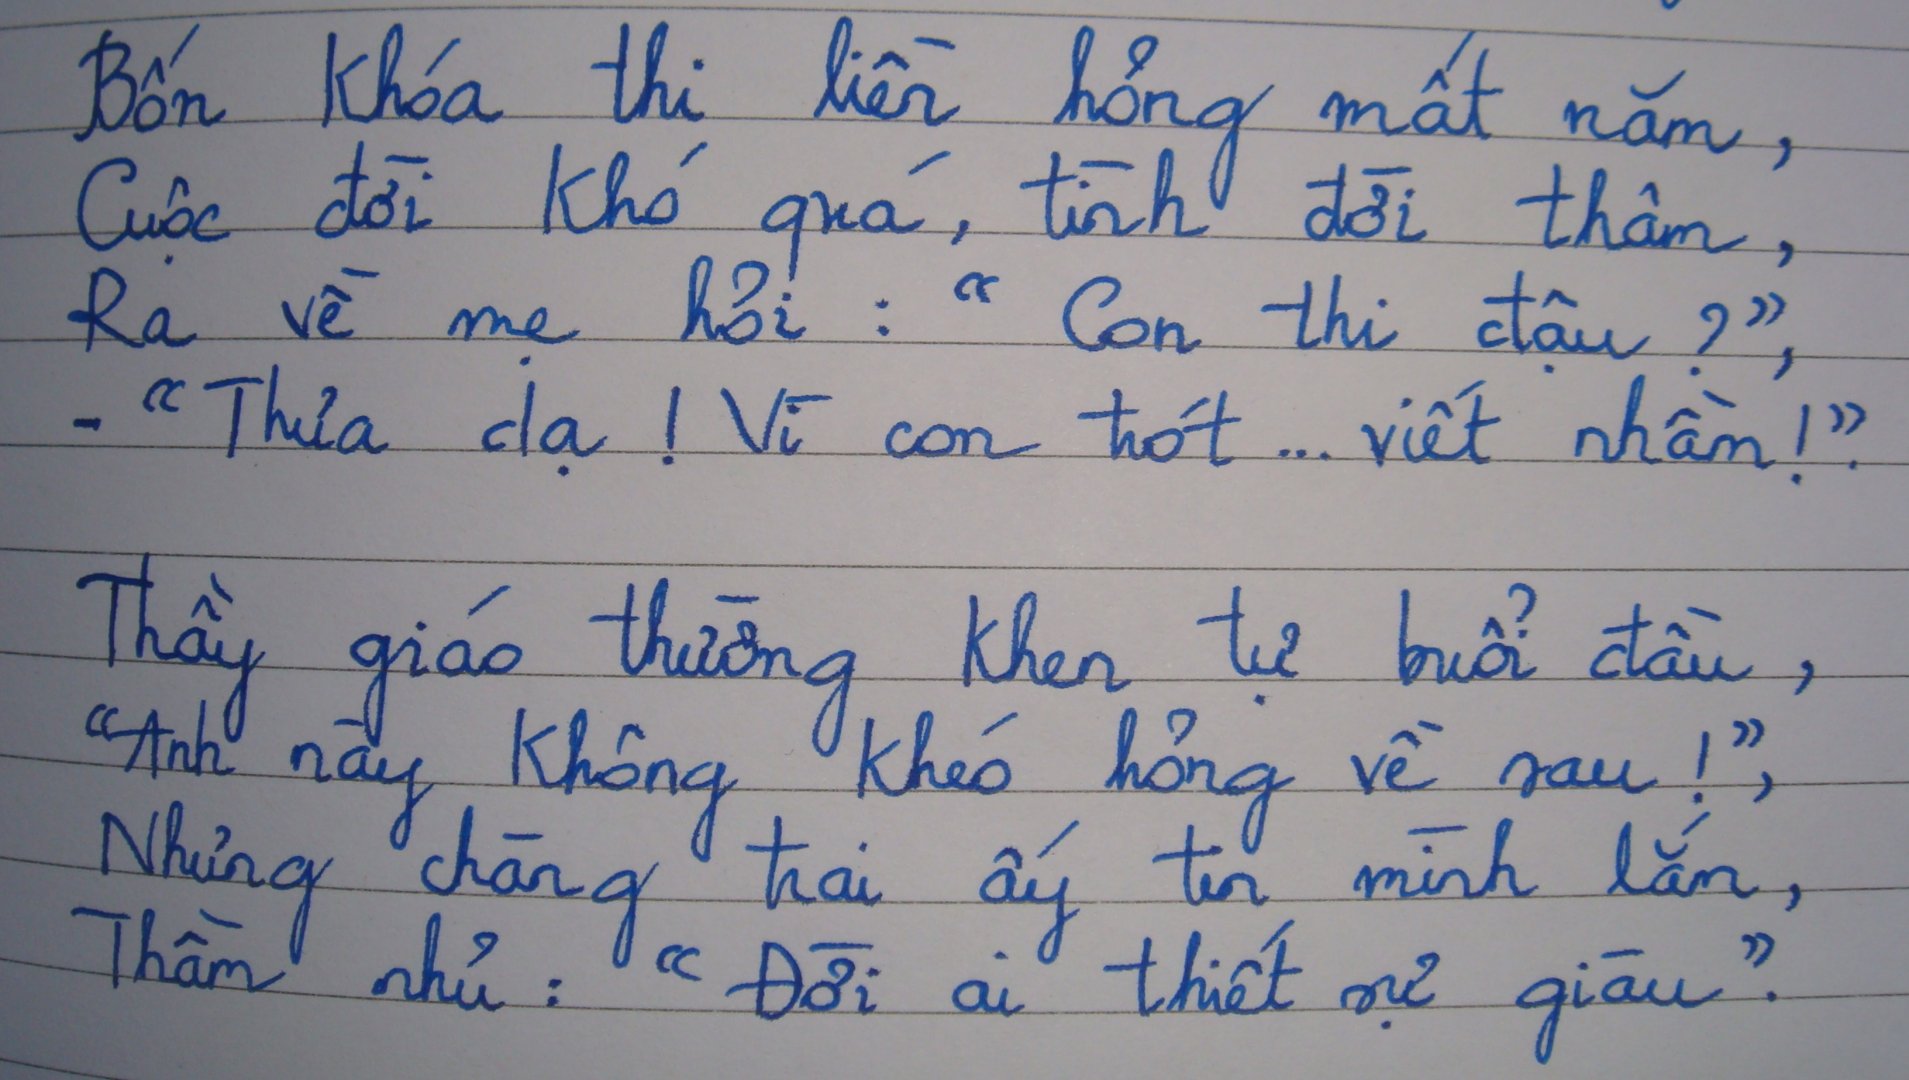 Bốn khóa thi liền hỏng mất năm,
Cuộc đời khó quá, tình đời thâm,
Ra về mẹ hỏi : “ Con thi đậu ?”,
- “Thưa dạ ! Vì con trót ... viết nhầm!”.
Thầy giáo thường khen tự buổi đầu,
“Anh này không khéo hỏng về sau !”,
Nhưng chàng trai ấy tin mình lắm,
Thầm nhủ : “ Đời ai thiết sự giàu”.